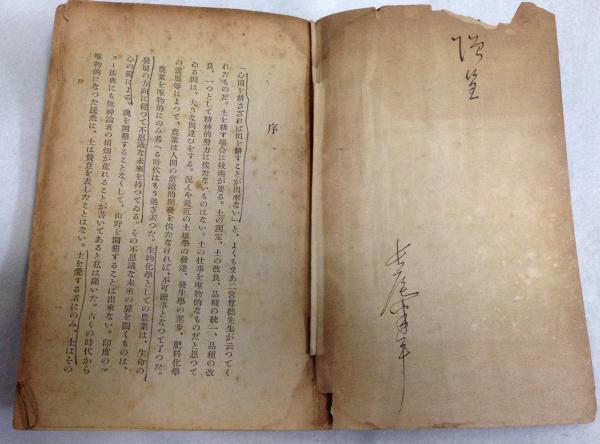 序
「心田を耕さざれば田を耕すことが出来ない」と、よくもまあ二宮尊德先生が云つてく
れたものだ。土を耕す場合に技術が要る。土の測定、土の改良、品種の統一、品種の改
良、一つとして精神的努力に俟たないものはない。土の仕事を唯物的なものだと思つて
ゐる間は、大きな間違ひをする。況んや最近の土壤學の發達、發生學の進步、肥料化學
の發展等によつて、農業は人間の意識的開發を俟たなければ、不可能事となつて了つた。
農業を唯物的にのみ考へる時代はもう過ぎ去つた。生物化學としての農業は、生命の
發展の方向に從つて不思議な未來を持つてゐる。その不思議な未來の扉を開くものは、
心の鍵による。魂を開墾することなくして、山野を開墾することは出來ない。印度のマ
ヌー法典にも無神論者の田畑が荒れることが書いてあると私は聞いた。古くの時代から
唯物的になつた民衆に、土は賛意を表したことはない。土を愛する者にのみ、土はその
序
一